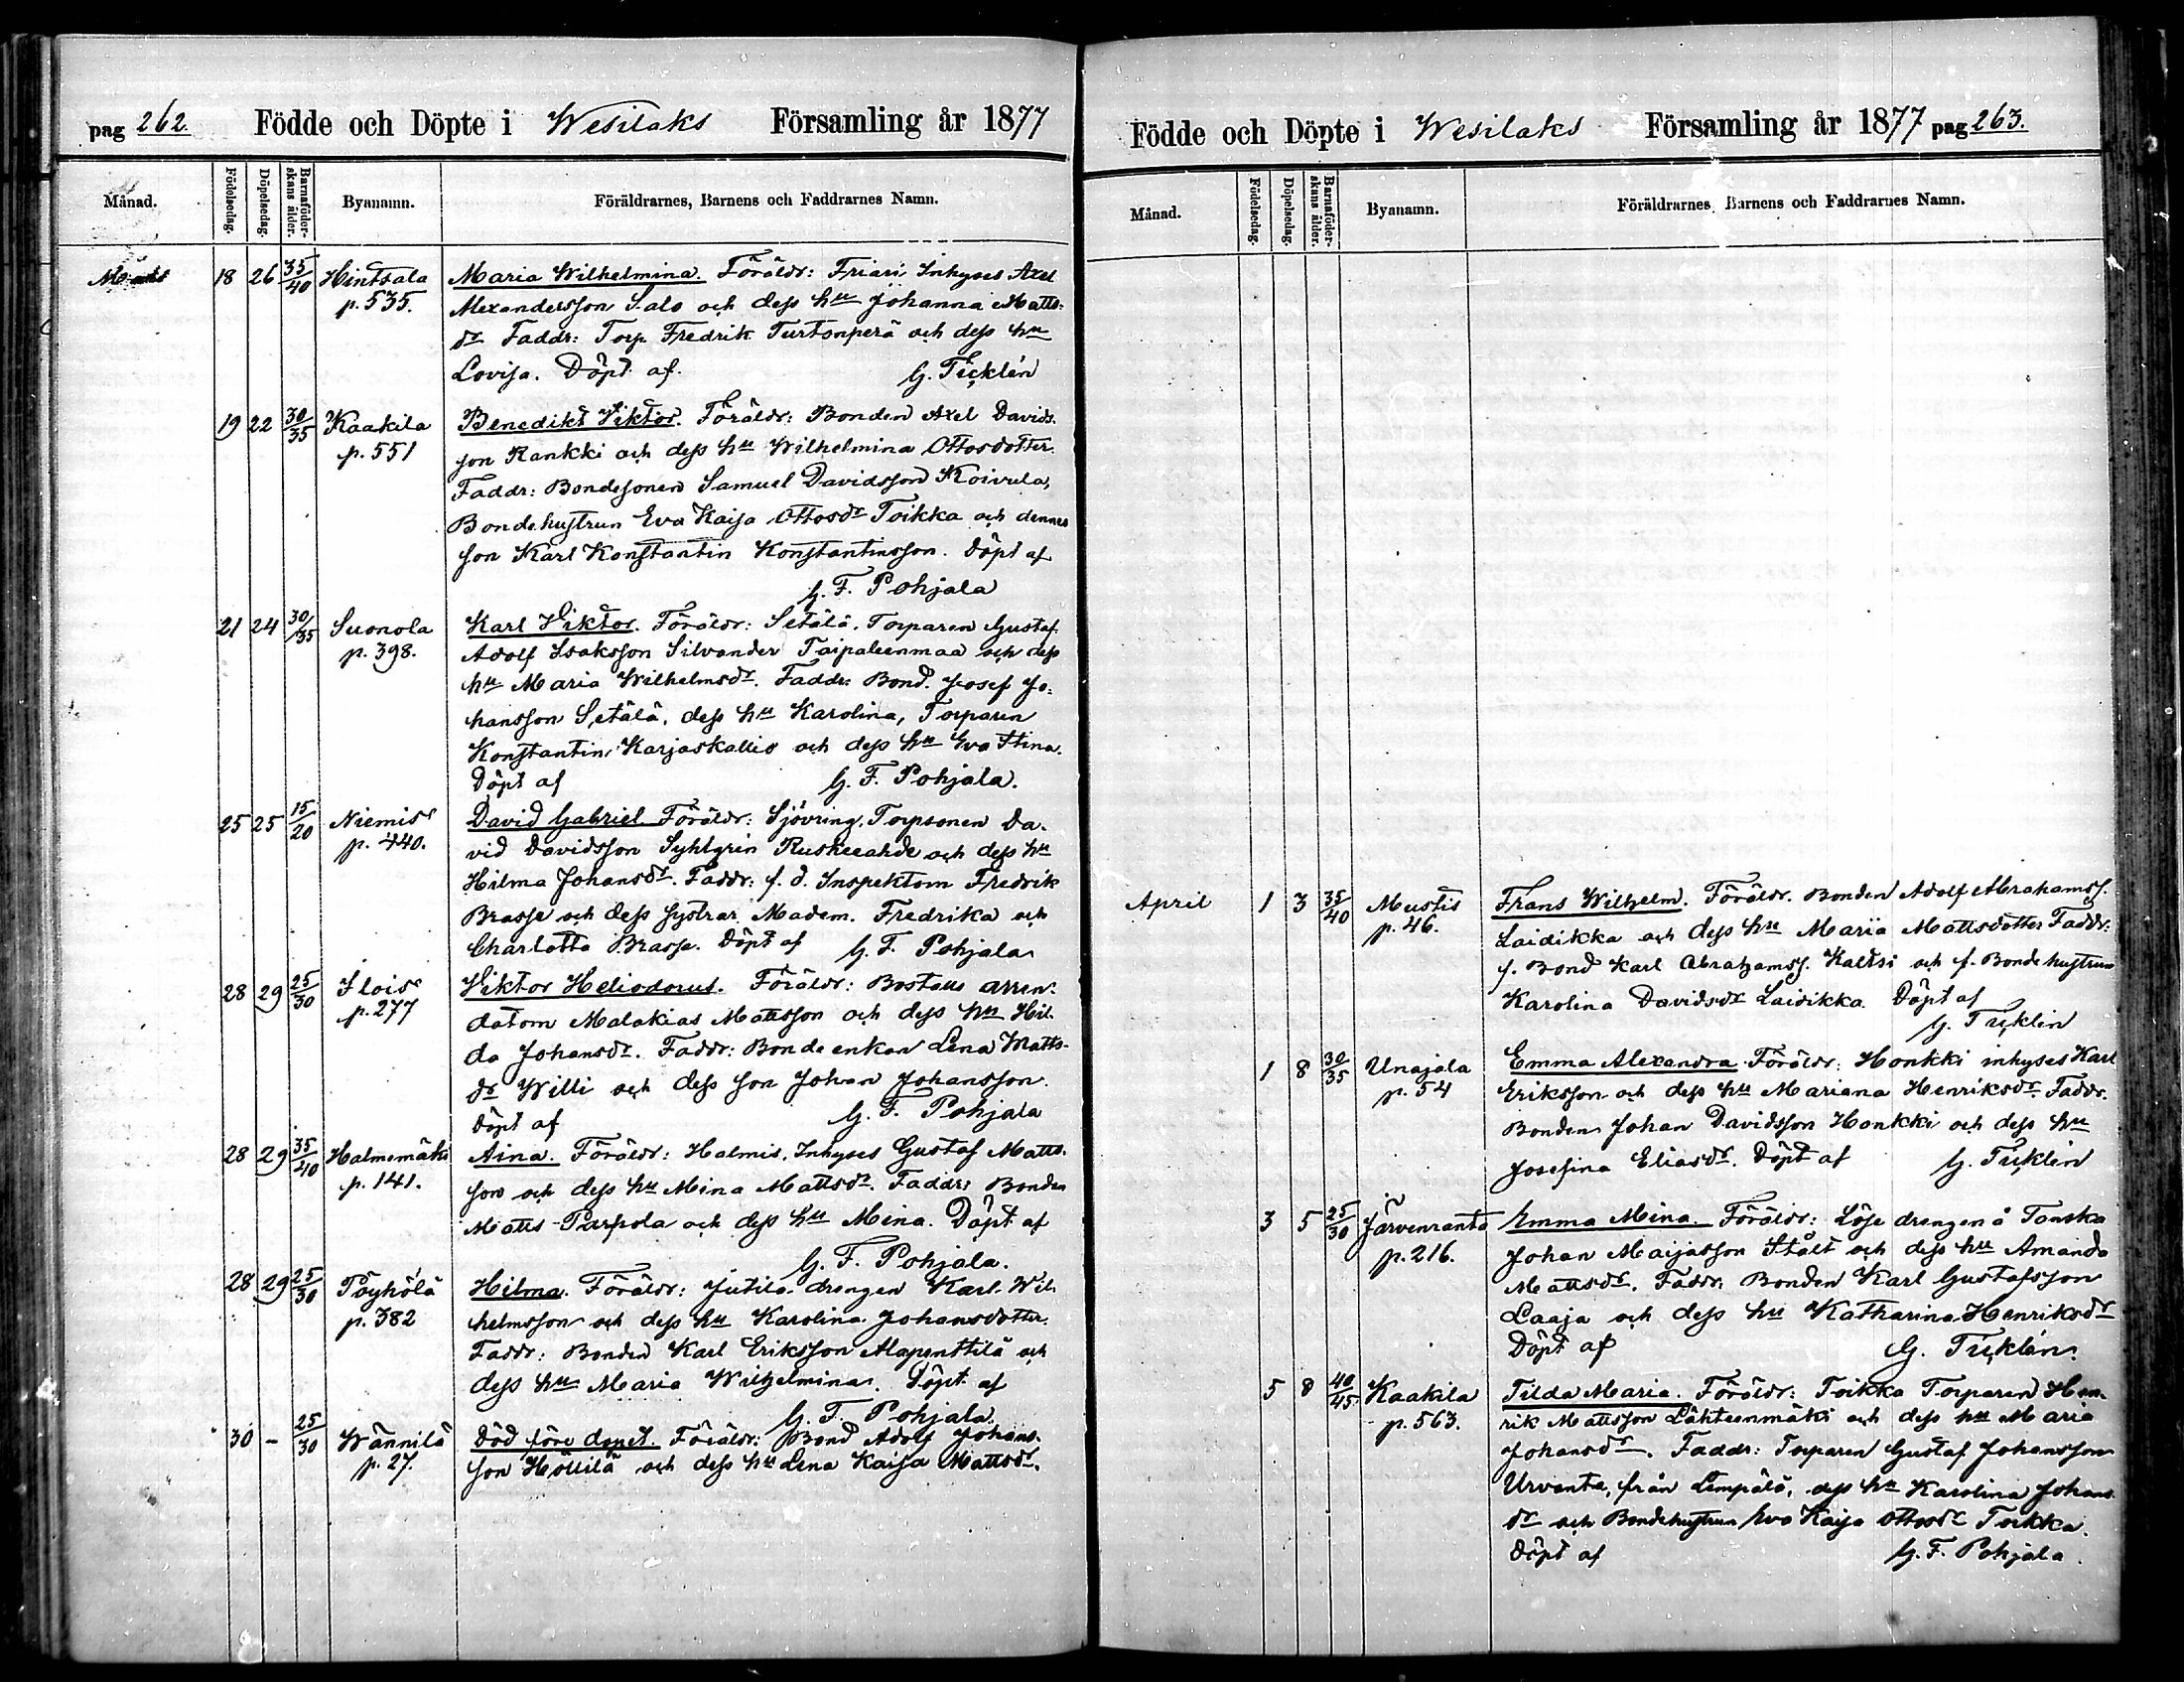 pag 262. Födde och Döpte i Wesilaks Församling år 1877
Månad. Födelsedag. Döpelsedag. Barnaföderskans ålder. Byanamn. Föräldrarnes, Barnens och Faddrarnes Namn.
Mars 18 26 35/40 Hintsala Maria Wilhelmina. Föräldr: Friari, Inhyses Axel
p. 535. Alexandersson Salo och dess hu Johanna Matts-
dr Faddr: Torp. Fredrik Turtonperä och dess hu
Lovisa. Döpt af G. Ticklén
19 22 30/35 Kaakila Benedikt Viktor. Föräldr: Bonden Axel Davids-
p. 551 son Rankki och dess hu Wilhelmina Ottosdotter.
Faddr: Bondesonen Samuel Davidsson Koivula,
Bondehustrun Eva Kaisa Ottosdr Toikka och dennes
son Karl Konstantin Konstantinsson. Döpt af
G. F. Pohjala
21 24 30/35 Suonola Karl Viktor. Föräldr: Setälä, Torparen Gustaf
p. 398. Adolf Isaksson Silvander Taipaleenmaa och dess
hu Maria Wilhelmsdr. Faddr: Bond. Josef Jo-
hansson Setälä, dess hu Karolina, Torparen
Konstantin Karjaskallio och dess hu Eva Stina.
Döpt af G. F. Pohjala.
25 25 15/20 Niemis David Gabriel. Föräldr: Sjövring, Torpsonen Da-
p. 440. vid Davidsson Syhlgrén Ruskeeahde och dess hu
Hilma Johansdr. Faddr: f. d. Inspektorn Fredrik
Brasse och dess systrar Madem. Fredrika och
Charlotta Brasse. Döpt af G. F. Pohjala
28 29 25/30 Ilois Viktor Heliodorus. Föräldr: Boställs arren-
p. 277 datorn Malakias Mattsson och dess hu Hil-
da Johansdr. Faddr: Bonde enkan Lena Matts-
dr Willi och dess son Johan Johansson.
Döpt af G. F. Pohjala
28 29 35/40 Halmemäki Aina. Föräldr: Halmis, Inhyses Gustaf Matts-
p. 141. son och dess hu Mina Mattsdr. Faddr: Bonden
Matts Parpola och dess hu Mina. Döpt af
G. F. Pohjala.
28 29 25/30 Pöyhölä Hilma. Föräldr: Jutila drengen Karl Wil-
p. 382 helmsson och dess hu Karolina Johansdotter.
Faddr: Bonden Karl Eriksson Alapenttilä och
dess hu Maria Wilhelmina. Döpt af
G. F. Pohjala.
30 – 25/30 Wännilä Död före dopet. Föräldr: Bond Adolf Johans-
p. 27. son Höllilä och dess hu Lena Kaisa Mattsdr.
Födde och Döpte i Wesilaks Församling år 1877 pag 263.
Månad. Födelsedag. Döpelsedag. Barnaföderskans ålder. Byanamn. Föräldrarnes, Barnens och Faddrarnes Namn.
April 1 3 35/40 Mustis Frans Wilhelm. Föräldr. Bonden Adolf Abrahamss.
p. 46. Laidikka och dess hu Maria Mattsdotter Faddr:
f. Bond Karl Abrahamss. Kaltsi och f. Bondehustrun
Karolina Davidsdr Laidikka. Döpt af
G. Ticklén
1 8 30/35 Unajala Emma Alexandra. Föräldr: Honkki inhyses Karl
p. 54 Eriksson och dess hu Mariana Henriksdr. Faddr.
Bonden Johan Davidsson Honkki och dess hu
Josefina Eliasdr. Döpt af G. Ticklén
3 5 25/30 Järvenranta Emma Mina. Föräldr: Löse drengen å Tonska
p. 216. Johan Maijasson Stålt och dess hu Amanda
Mattsdr. Faddr: Bonden Karl Gustafsson
Laaja och dess hu Katharina Henriksdr
Döpt af G. Ticklén.
5 8 40/45 Kaakila Tilda Maria. Föräldr: Toikka Torparen Hen-
p. 563. rik Mattsson Lähteenmäki och dess hu Maria
Johansdr. Faddr: Torparen Gustaf Johansson
Urvanta, från Lempälä, dess hu Karolina Johans-
dr och Bondehustrun Eva Kaisa Ottosdr Toikka.
Döpt af G. F. Pohjala.